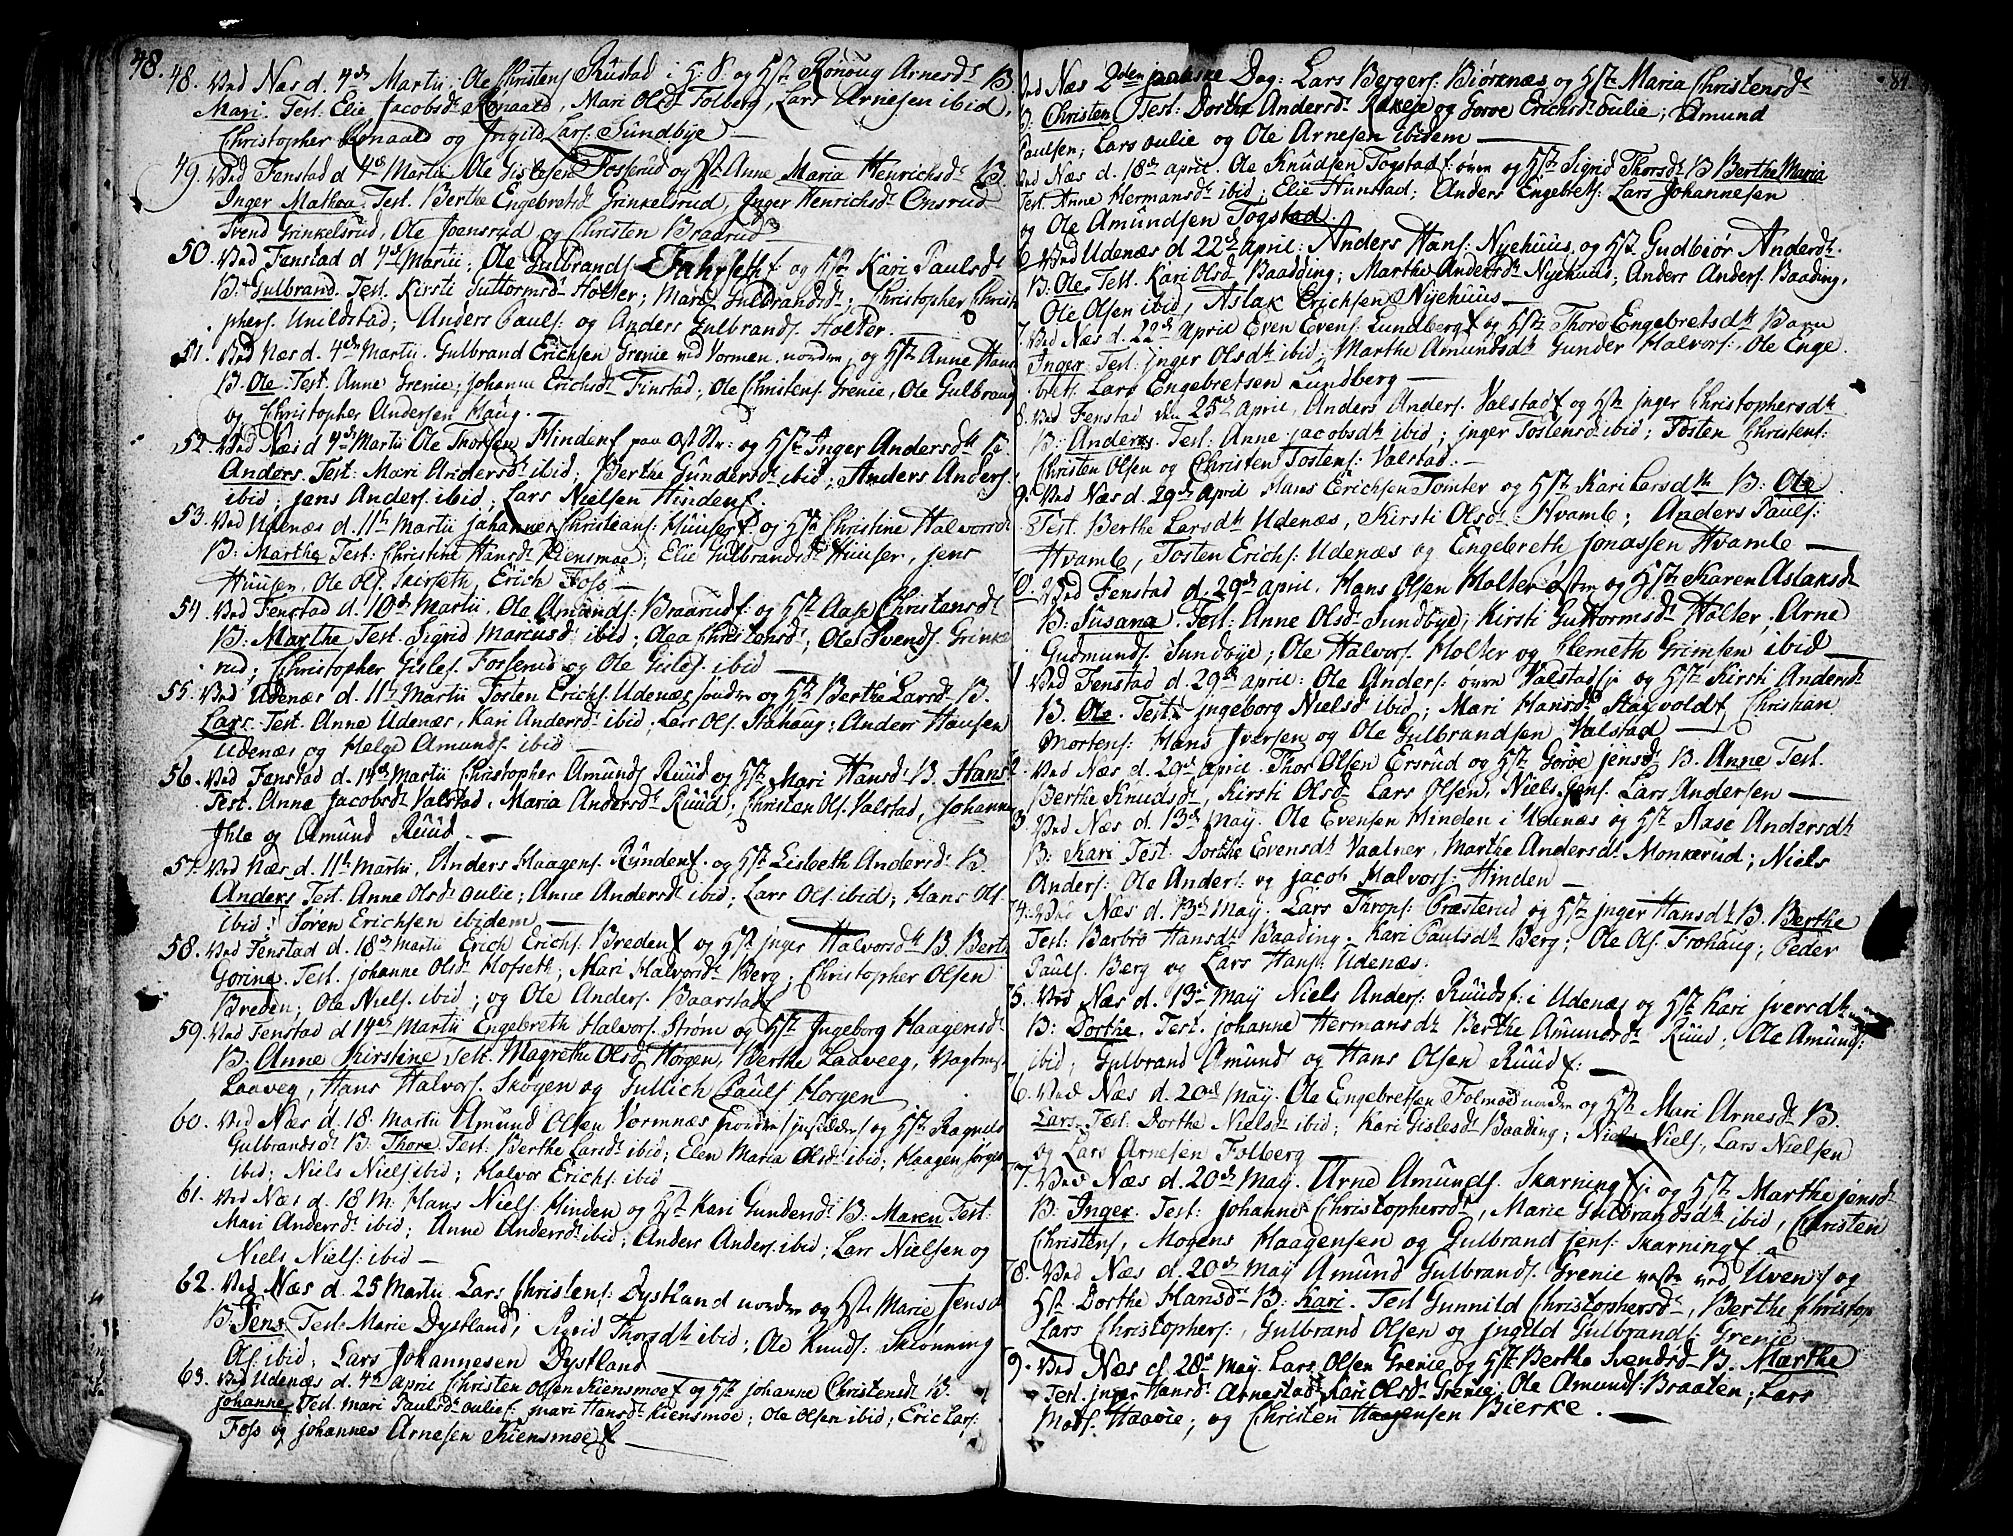 48.
48. Ved Næs d. 4de Martii: Ole Christens Rustad i 5: S: og Hst: Ronoug Arnesdt B.
Mari. Test. Elie Jacobsdt, Mari Olsdt Folberg, Lars Arnesen ibid,
Christopher og Ingild Lars: Sundbye
49. Ved Fenstad d 4de Martii Ole Gislesen Fosserud og Hst Anne Maria Henrichsdt B.
Inger Mathea. Test. Berthe Engebretsdt Grinkelsrud, Inger Henrichsdt Onsrud
Svend Grinkelsrud, Ole Joensrud og Christen Braarud
50. Ved Fenstad d 4de Martii, Ole Gulbrands. Fahrseth og Hst: Kari Paulsdt
B: Gulbrand. Test. Kirsti Guttormsdt Holter; Mari Gulbrandsdt; Christopher Christ
phers. Unilostad; Anders Pauls: og Anders Gulbrands. Holter.
51. Ved Næs d. 4de Martii. Gulbrand Erichsen Grenie ved Vormen nordre, og Hst Anne Hans
B. Ole. Test. Anne Grenie, Johanne Erichsdt Finstad, Ole Christens. Grenie, Ole Gulbrand
og Christopher Andersen Haug.
52. Ved Næs d 4de Martii Ole Thorsen Hinden paa Ost Nr: og Hst Inger Andersdtr B
Anders. Test: Mari Andersdt ibid. Berthe Gundersdt ibid; Anders Anders.
ibid; Jens Anders. ibid, Lars Nielsen Hinden
53. Ved Udenæs d. 11te Martii Johannes Christians: Huuser og Hst Christine Halvorsdt
B: Marthe Test: Christine Hansdt Kiensmoe; Elie Gulbrandsdt Huuser, Jens
Huuser, Ole Ols. Skirseth, Erich Foss
54. Ved Fenstad d. 10de Martii. Ole Amunds. Braarud og Hst Aase Christensdt
B: Marthe Test. Sigrid Marcusd. ibid; Olea Christensdt; Ole Svends. Grinke
rud; Christopher Gisles. Fosserud og Ole Gisles. ibid
55. Ved Udenæs d. 11te Martii Tosten Erichs. Udenæs søndre og Hst Berthe Larsdt B.
Lars. Test. Anne Udenæs, Kari Andersdt ibid, Lars Ols. Stahaug; Anders Hansen
Udenæs og Helge Amunds. ibid
56. Ved Fenstad d. 14de Martii Christopher Amunds Ruud og Hst Mari Hansdt B. Hans
Test. Anne Jacobsdt Valstad, Maria Andersdt Ruud, Christen Ols. Valstad, Johanne
Ihle og Amund Ruud
57. Ved Næs d. 11te Martii, Anders Haagens. Rynden og Hst Lisbeth Andersdt B.
Anders Test. Anne Olsdt oulie; Anne Andersdt ibid; Lars Ols ibid; Hans Ols
ibid; Søren Erichsen ibidem
58. Ved Fenstad d. 18de Martii Erich Erichs. Breden og Hst Inger Halvorsdtr B. Berth
Gorine. Test. Johanne Olsdt Hofseth, Mari Halvorsdt Berg; Christopher Olsen
Breden; Ole Niels. ibid; og Ole Anders. Baarstad
59. Ved Fenstad d 14de Martii Engebreth Halvors. Strøm og Hst Ingeborg Haagensdt
B. Anne Kirstine Test. Magrethe Olsdt Horgen, Berthe Laaveg,
Laaveg, Hans Halvors. Skøyen og Gullich Pauls Horgen
60. Ved Næs d. 18. Martii Amund Olsen Vormnæs og Hst Ragnild
Gulbrandsdt B: Thore. Test. Berthe Larsdt ibid; Elen Maria Olsdt ibid; Haagen Jørgen
ibid; Niels Niels ibid; Halvor Erichs: ibid
61. Ved Næs d. 18 M. Hans Niels. Hinden og Hst Kari Gundersdt B: Maren Test:
Mari Andersdt ibid; Anne Andersdt ibid; Anders Anders. ibid; Lars Nielsen og
Niels Niels: ibid
62. Ved Næs d. 25 Martii Lars Christens: Dystland nordre og Hst: Marie Jensd
B: Jens. Test. Marie Dystland; Sigrid Thorsdtr ibid; Ole Knuds: Sklonning
Ols: ibid; Lars Johannesen Dystland
63. Ved Udenæs d. 4de April Christen Olsen Kiensmoe og Hst Johanne Christensdt B.
Johannes Test. Mari Paulsdt oulie; Mari Hansdt Kiensmoe; Ole Olsen ibid; Eric Lars:
Foss og Johannes Arnesen Kiensmoe
81.
Ved Næs 2den paaske Dag: Lars Bergers: Biørenæs og Hst Maria Christensdt
B: Christen Test: Dorthe Andersdt Rakeje og Gorve Erichsdt oulie; Amund
Paulsen; Lars oulie og Ole Arnesen ibidem
Ved Næs d. 18de april. Ole Knudsen Togstad øvre og Hst Sigrid Thorsdt B Berthe Maria
Test. Anne Hermansdt ibid; Elie Hunstad; Anders Engebrets: Lars Johannesen
og Ole Amundsen Togstad.
6 Ved Udenæs d. 22de April: Anders Hans: Nyehuus, og Hst Gudbiør Andersdt
B. Ole. Test. Kari Olsdt Baadding; Marthe Andersdt Nyehuus; Anders Anders. Baading,
Ole Olsen ibid, Aslak Erichsen Nyehuus
7. Ved Næs d. 22de April Even Evens. Lundberg og Hst Thoro Engebretsdtr Barn
Inger. Test. Inger Olsdtr ibid; Marthe Amundsdtr Gunder Halvors. Ole Enge
brets. Lars Engebretsen Lundberg
8. Ved Fenstad den 25de April, Anders Anders. Valstad og Hst Inger Christophersdtr
B. Anders. Test. Anne Jacobsdtr ibid; Inger Tostensd ibid; Tosten Christens:
Christen Olsen og Christen Tostens: Valstad.
9. Ved Næs d. 29de April Hans Erichsen Tomter og Hst Kari Larsdtr B: Ole
Test. Berthe Larsdtr Udenæs, Kirsti Olsdt Hvamb; Anders Pauls:
Hvamb, Tosten Erichs: Udenæs og Engebreth Jonassen Hvamb
0. Ved Fenstad d. 29de april. Hans Olsen Holter østre og Hst Karen Aslaksdt
B: Susana. Test: Anne Olsdt Sundbye; Kirsti Guttormsdt Holter, Arne
Gudmunds. Sundbye; Ole Halvors. Holter og Clemeth Grimsen ibid
1 Ved Fenstad d. 29de april: Ole Anders: øvre Valstad og Hst Kirsti Andersdt
B. Ole. Test. Ingeborg Nielsd ibid; Mari Hansdt Stayvold, Christian
Mortens: Hans Iversen og Ole Gulbrandsen Valstad
Ved Næs d. 29de april. Thor Olsen Ersrud og Hst Gorve Jensdt B. Anne Test.
Berthe Knudsdt, Kirsti Olsd Lars Olsen, Niels Jens: Lars Andersen
3. Ved Næs d. 13de May. Ole Evensen Hinden i Udenæs og Hst Aase Andersdtr
B: Kari Test: Dorthe Evensdt Vaalner, Marthe Andersdt Monkerud; Niels
Anders: Ole Anders: og Jacob Halvors: Hinden
4. Ved Næs d. 13de May. Lars Throns: Præsterud og Hst Inger Hansdt B. Berthe
Test: Barbro Hansdt Baading. Kari Paulsdtr Berg; Ole Ols. Frohaug; Peder
Pauls. Berg og Lars Hans: Udenæs.
5. Ved Næs d. 13de May Niels Anders: Ruuds: i Udenæs og Hst Kari Iversdtr
B: Dorthe. Test. Johanne Hermansdt Berthe Amundsdt Ruud; Ole Amund:
ibid; Gulbrand Amunds og Hans Olsen Ruud
6. Ved Næs d. 20de May. Ole Engebretsen Folmoe nordre og Hst Mari Arnesdt B.
Lars. Test. Dorthe Nielsdt ibid; Kari Gislesdt Baading; Niels Niels, Lars Nielsen
og Lars Arnesen Folberg
7. Ved Næs d. 20de May. Arne Amunds. Skarning og Hst Marthe Jensdt
B. Inger. Test. Johanne Christophersdt, Marie Gulbrandsdtr ibid, Christen
Christens, Mogens Haagensen og Gulbrand Jens: Skarning
8. Ved Næs d. 20de May Amund Gulbrands. Grenie vestre ved Uvens og
Hst Dorthe Hansdt B: Kari. Test Gunnild Christophersdt, Berthe Christop
Lars Christophers:, Gulbrand Olsen og Ingild Gulbrands: Grenie
9. Ved Næs d. 28de May Lars Olsen Grenie og Hst Berthe Svendsdt B. Marthe
Test. Inger Hansdt Arnestad, Kari Olsdt Grenie; Ole Amunds: Braaten, Lars
Mads. Haavie; og Christen Haagensen Bierke.